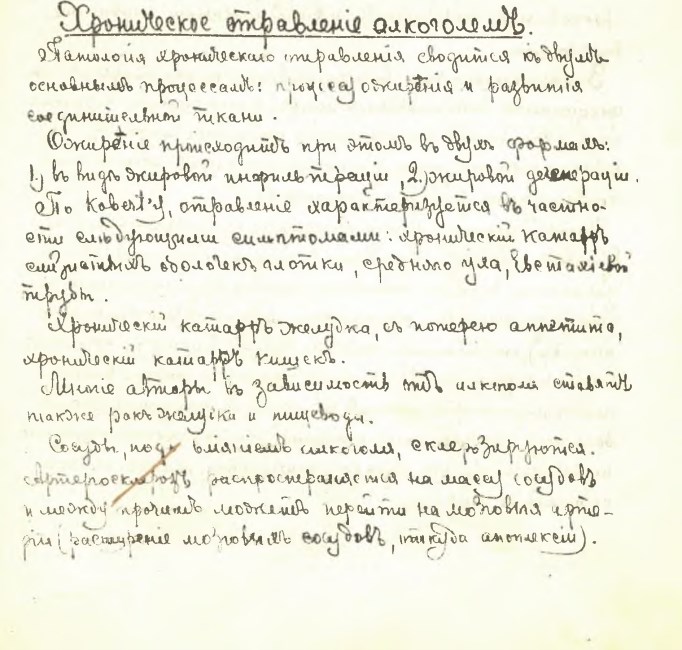 Хроническое отравленіе алкоголемъ.
Патологія хроническаго отравленія сводится къ двумъ
основнымъ процессамъ: процессу ожирѣнія и развитія
соединительной ткани.
Ожирѣніе происходитъ при этомъ въ двухъ формахъ:
1) въ видѣ жировой инфильтраціи, 2) жировой дегенераціи.
По Kobert'у, отравленіе характеризуется въ частно-
сти слѣдующими симптомами: хроническій катарръ
слизистыхъ оболочекъ глотки, средняго уха, Евстахіевой
трубы.
Хроническій катарръ желудка, съ потерею аппетита,
хроническій катарръ кишекъ.
Многіе авторы въ зависимость отъ алкоголя ставятъ
также ракъ желудка и пищевода.
Сосуды, подъ вліяніемъ алкоголя, склерозируются.
Артеросклерозъ распространяется на массу сосудовъ
и между прочимъ можетъ перейти на мозговыя арте-
ріи (расширеніе мозговыхъ сосудовъ, откуда апоплексіи).